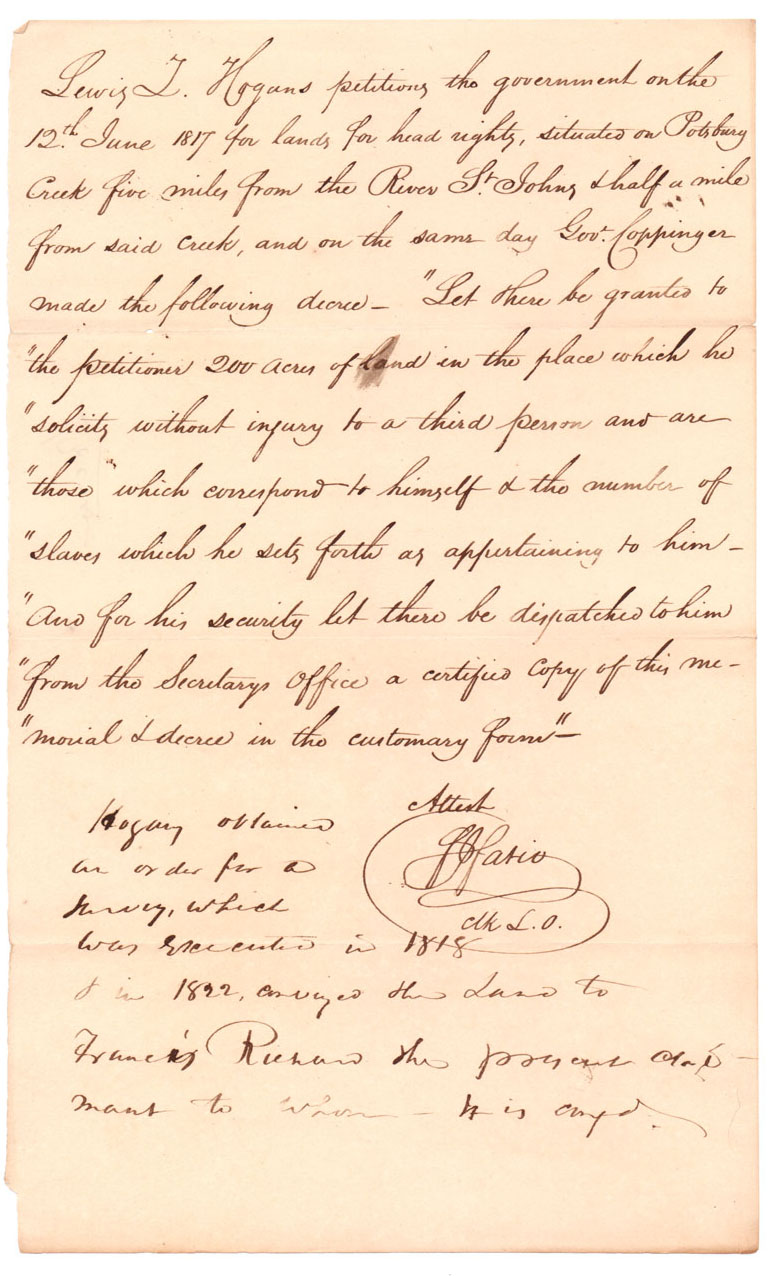 Lewis Z. Hogans petitions the government on the
12th. June 1817 for lands for head rights, situated on Potsburg
Creek five miles from the River St. Johns & half a mile
from said Creek, and on the same day Govr. Coppinger
made the following decree — "Let there be granted to
"the petitioner 200 acres of land in the place which he
"solicits without injury to a third person and are
"those which correspond to himself & the number of
"slaves which he sets forth as appertaining to him —
"And for his security let there be dispatched to him
"from the Secretarys Office a certified Copy of this me-
"morial & decree in the customary form" —
Attest
F J Fatio
Clk L.O.
Hogans obtained
an order for a
survey, which
was executed in 1818
& in 1822, conveyed the Land to
Francis Richard the present clai-
mant to whom — it is confd.